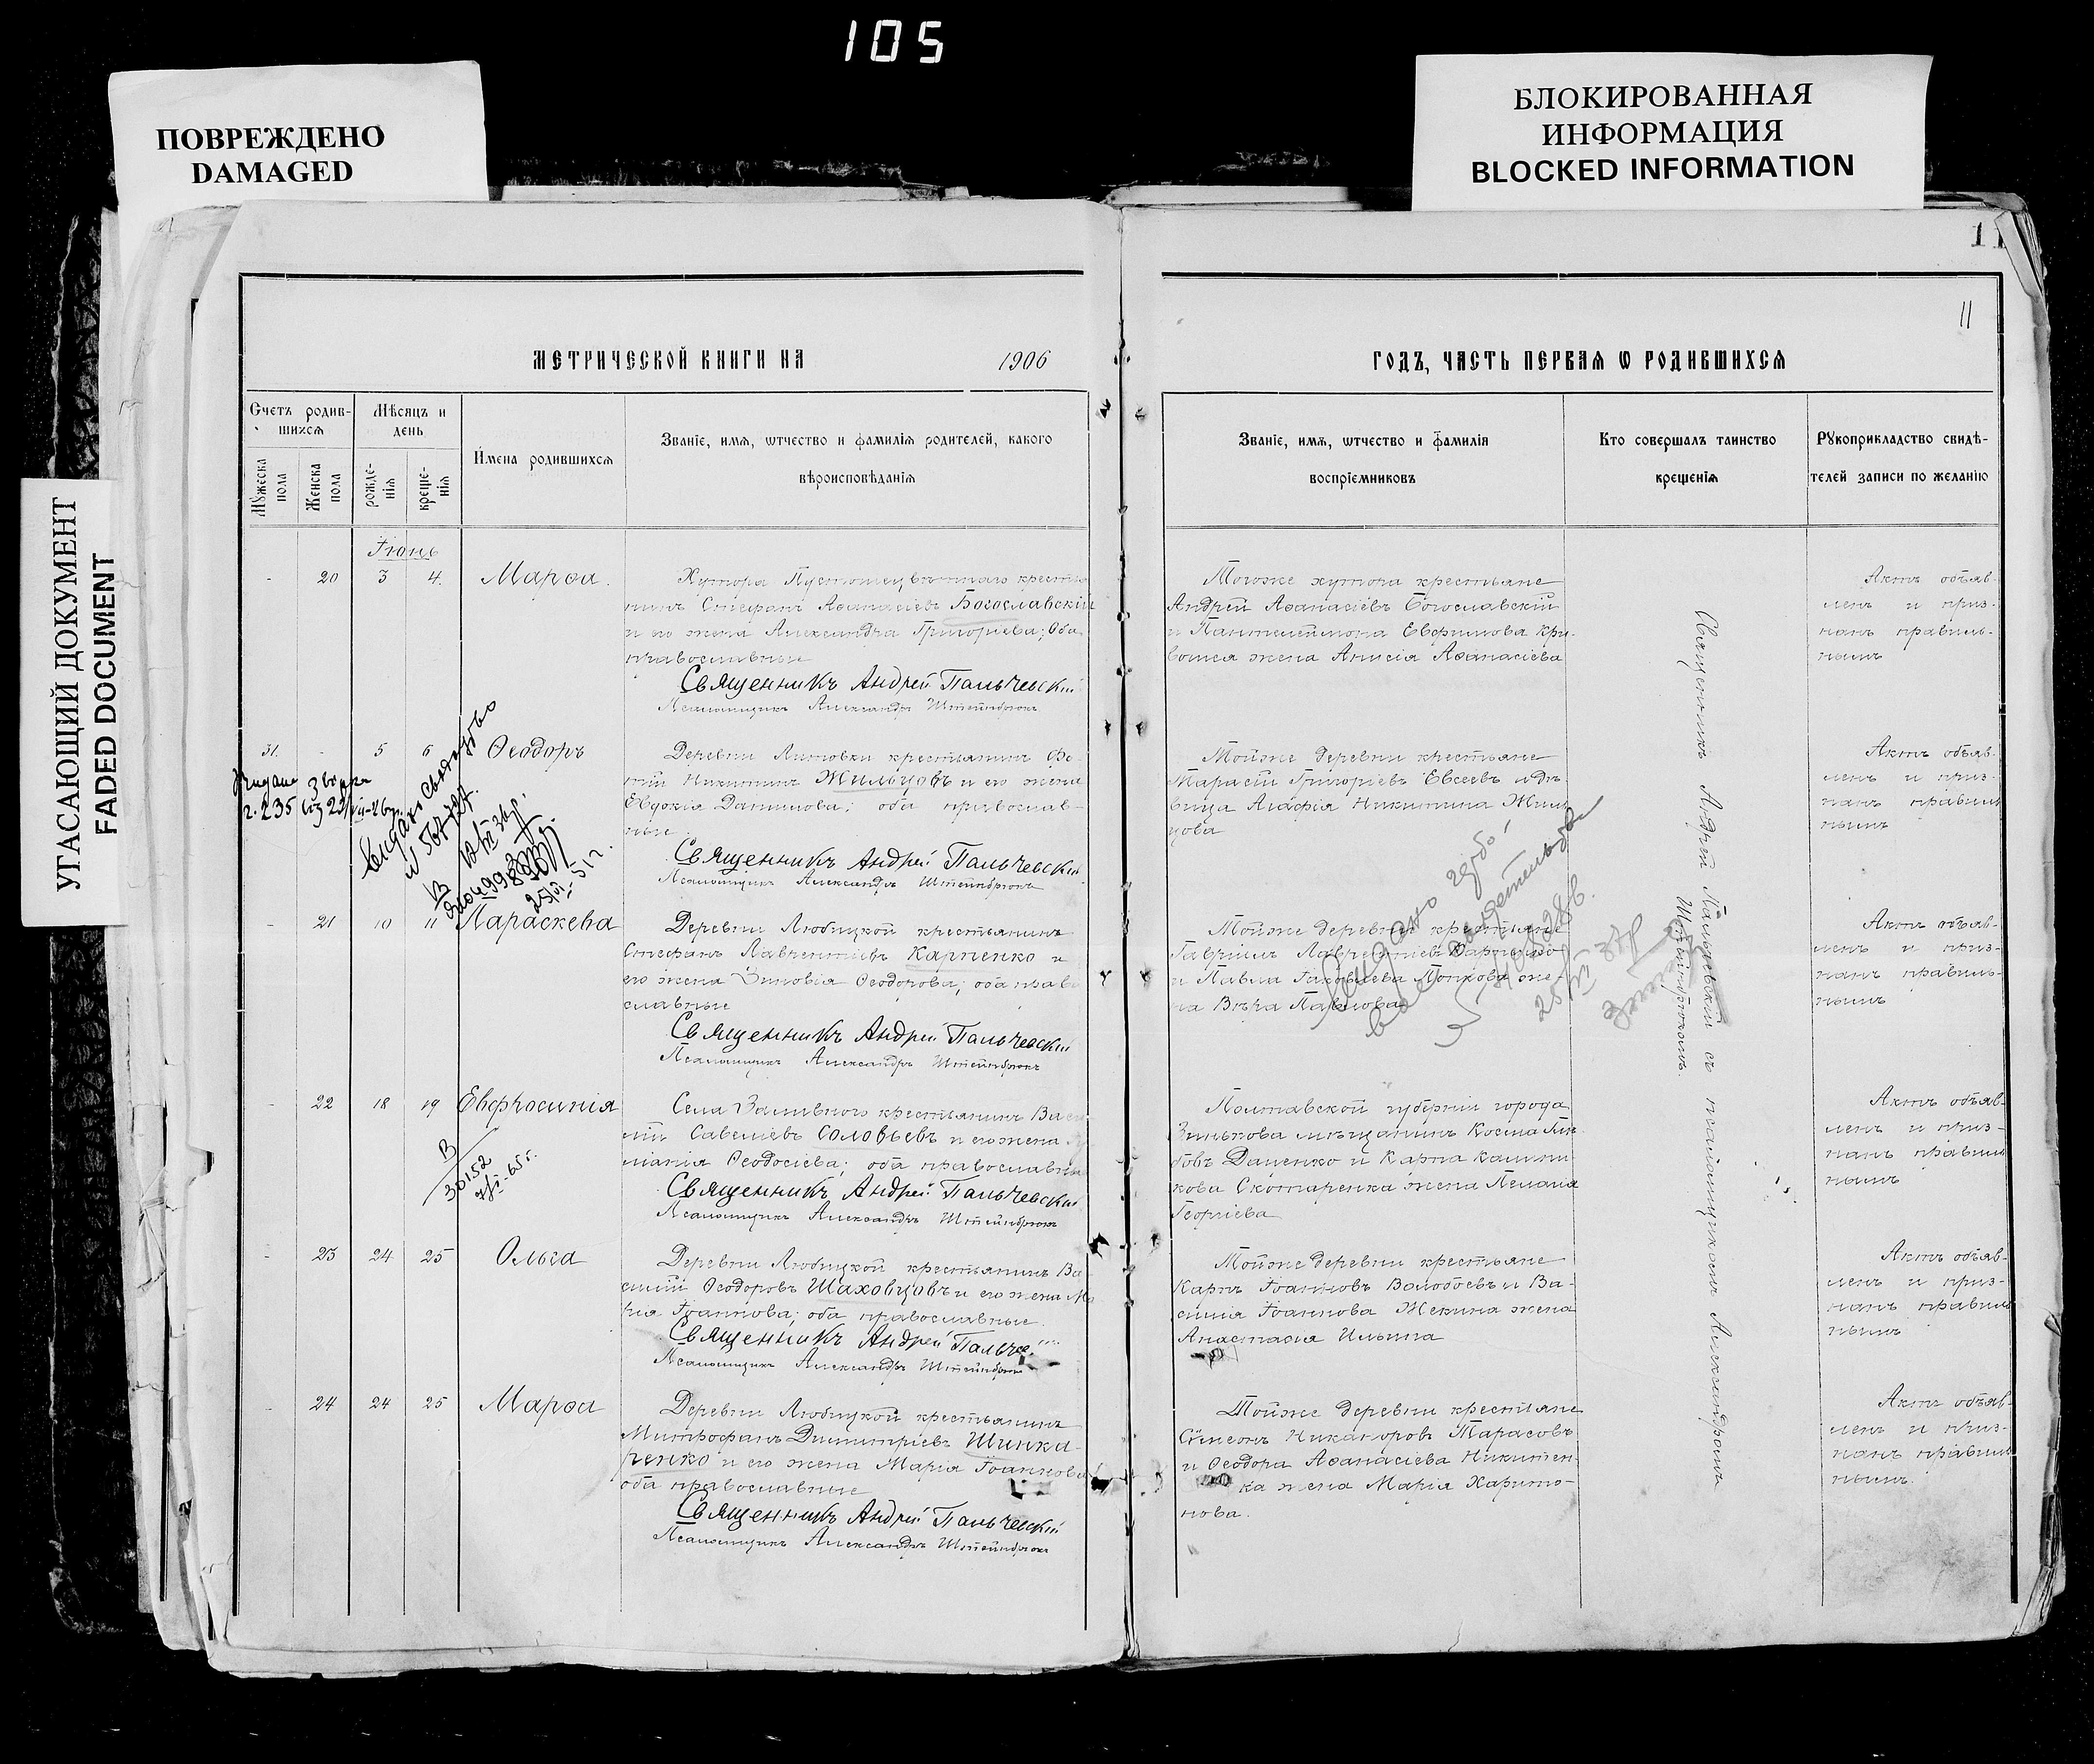 105
ПОВРЕЖДЕНО
DAMAGED
БЛОКИРОВАННАЯ
ИНФОРМАЦИЯ
BLOCKED INFORMATION
УГАСАЮЩИЙ ДОКУМЕНТ
FADED DOCUMENT
11
11
МЕТРИЧЕСКОЙ КНИГИ НА 1906
ГОДЪ, ЧАСТЬ ПЕРВАѦ Ѡ РОДИВШИХСѦ
Счетъ родив-
шихсѧ
Мѣсяцъ и
день
Мужеска
пола
Женска
пола
рожде-
нїѧ
креще-
нїѧ
Имена родившихсѧ
Званїе, имѧ, ѡтчество и фамилїѧ родителей, какого
вѣроисповѣданїѧ
Званїе, имѧ, ѡтчество и фамилїѧ
воспрїемниковъ
Кто совершалъ таинство
крещенїѧ
Рукоприкладство свидѣ-
телей записи по желанїю
Іюнь
- 20 3 4. Марѳа.
Хутора Пустоцвѣтнаго крестья
нинъ Стефанъ Аѳанасіевъ Богославскій
и его жена Александра Григоріева; оба
православные
Священникъ Андрей Пальчевскій
Псаломщикъ Александръ Штейнбрюкъ
Тогоже хутора крестьяне
Андрей Аѳанасіевъ Богославскій
и Пантелеимона Евфимова Кри-
вошея жена Анисія Аѳанасіева
Актъ объяв-
ленъ и приз-
нанъ правиль-
нымъ
31. - 5 6 Ѳеодоръ
Деревни Литовки крестьянинъ Фо-
тій Никитинъ Жильцовъ и его жена
Евдокія Данилова; оба православ-
ные
Священникъ Андрей Пальчевскій
Псаломщикъ Александръ Штейнбрюкъ
Тойже деревни крестьяне
Тарасій Григоріевъ Евсеевъ и дѣ-
вица Агафія Никитина Жиль
цова
Актъ объяв-
ленъ и приз-
нанъ правиль
нымъ
- 21 10 11 Параскева
Деревни Любицкой крестьянинъ
Стефанъ Лаврентіевъ Карпенко и
его жена Зиновія Ѳеодорова; оба право
славные
Священникъ Андрей Пальчевскій
Псаломщикъ Александръ Штейнбрюкъ
Тойже деревни крестьяне
Гавріилъ Лаврентіевъ Карпенко
и Павла Іаковлева Попкова же-
на Вѣра Павлова
Актъ объяв-
ленъ и приз-
нанъ правиль-
нымъ
- 22 18 19 Евфросинія
30152
Села Заливного крестьянинъ Васи-
лій Савеліевъ Соловьевъ и его жена
Ѳеодосіева; оба православные
Священникъ Андрей Пальчевскій
Псаломщикъ Александръ Штейнбрюкъ
Полтавской губерніи города
Зинькова мѣщанинъ Косма
Даценко и Карпа
Скотаренка жена Пелагія
Георгіева
Актъ объяв-
ленъ и приз-
нанъ правиль
нымъ
- 23 24 25 Ольга
Деревни Любицкой крестьянинъ Ва
силій Ѳеодоровъ Шаховцовъ и его жена Ма
рія Іоаннова; оба православные.
Священникъ Андрей
Псаломщикъ Александръ Штейнбрюкъ
Тойже деревни крестьяне
Карпъ Іоанновъ Волобоевъ и Ва-
силія Іоаннова Жекина жена
Анастасія Ильина
Актъ объяв-
ленъ и приз-
нанъ правиль
нымъ
24 24 25 Марѳа
Деревни Любицкой крестьянинъ
Митрофанъ Димитріевъ Шинка-
ренко и его жена Марія Іоаннова
оба православные
Священникъ Андрей Пальчевскій
Псаломщикъ Александръ Штейнбрюкъ
Тойже деревни крестьяне
Симеонъ Никаноровъ Тарасовъ
и Ѳеодора Аѳанасіева Никитен-
ка жена Марія Харито-
нова.
Актъ объяв-
ленъ и приз-
нанъ правиль
нымъ.
Священникъ Андрей Пальчевскій съ псаломщикомъ Александромъ
Штейнбрюкомъ.